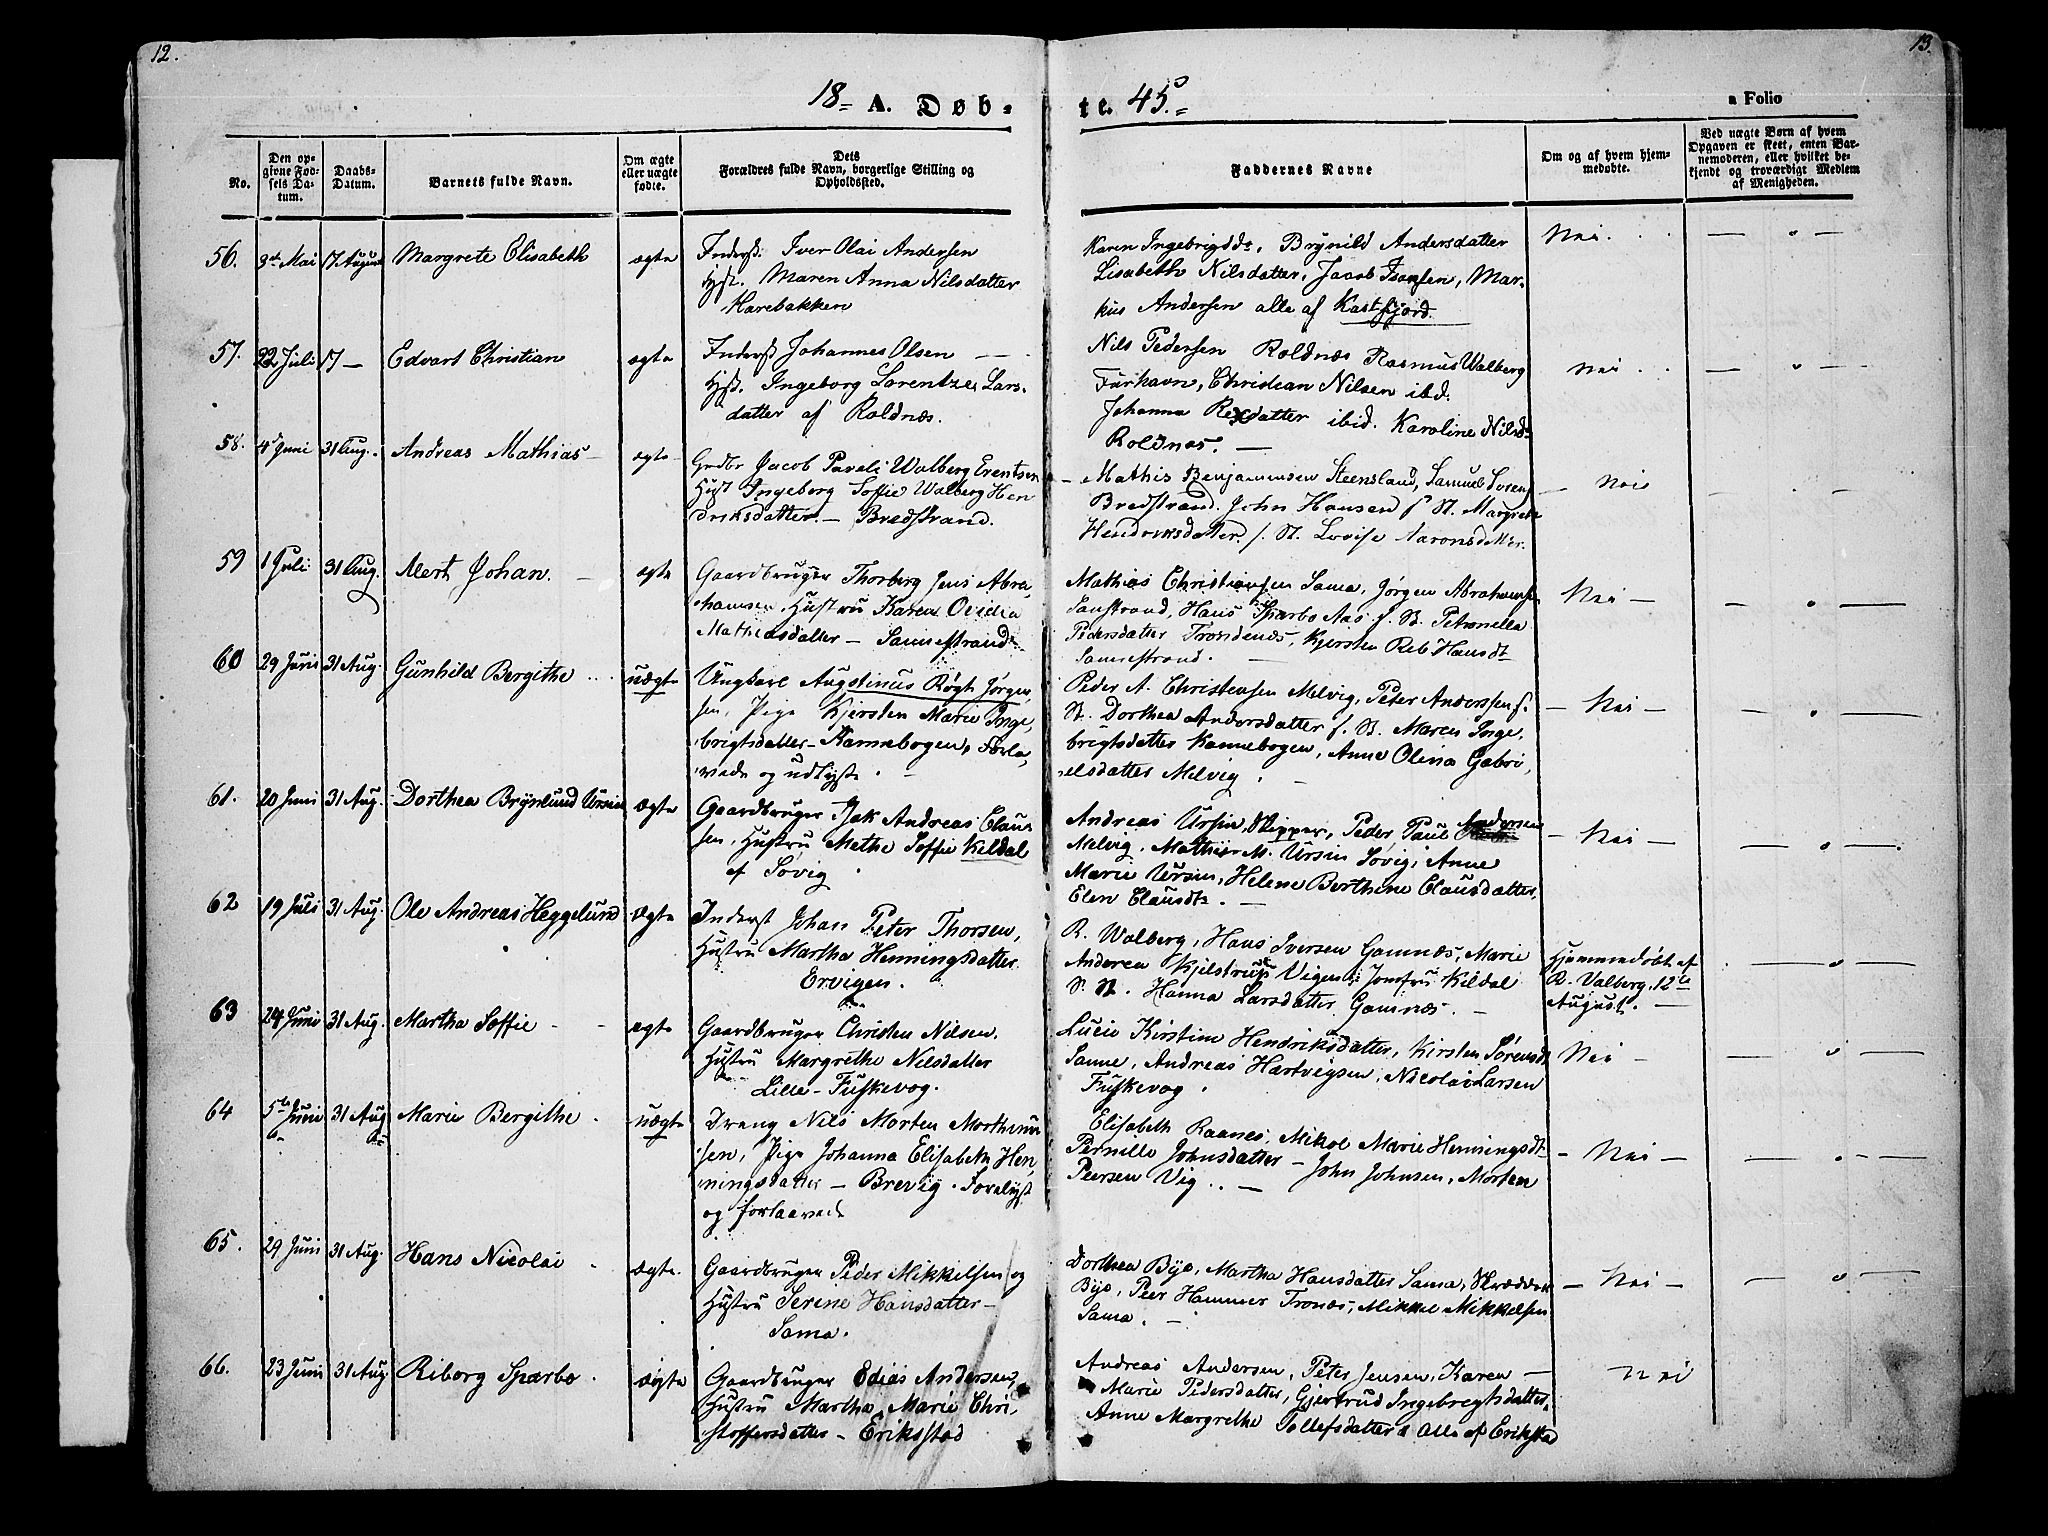 12.
13.
18 A. Døbte. 45.
a Folio
No.
Den opgivne Fødsels Datum.
Daabs-Datum.
Barnets fulde Navn.
Om ægte eller uægte fødte.
Dets Forældres fulde Navn, borgerlige Stilling og Opholdssted.
Faddernes Navne
Om og af hvem hjemmedøbte.
Ved uægte Børn af hvem Opgaven er skeet, enten Barnemoderen, eller hvilket bekjendt og troværdigt Medlem af Menigheden.
56. 3d Mai 17 August Margrete Elisabeth ægte
Inderst. Iver Olai Andersen
Hst. Maren Anna Nilsdatter
Harebakken
Karen Ingebrigdt, Brynild Andersdatter
Lisabeth Nilsdatter, Jacob Isaksen, Mar-
kus Andersen alle af Kastfjord.
Nei.
57. 22 Juli 17 — Edvart Christian ægte
Inderst Johannes Olsen
Hst. Ingeborg Lorentze Lars-
datter af Roldnæs.
Nils Pedersen Roldnæs Rasmus Walberg
Furhavn, Christian Nilsen ibd.
Johanna datter ibid. Karoline Nilsd
Roldnæs.
Nei
58. 4d Juni 31 Aug. Andreas Mathias ægte
Grdbr Jacob Paveli Walberg Erentsen
Hust Ingeborg Soffie Walberg Hen
driksdatter. — Bredstrand.
Mathis Benjamensen Steensland, Samuel Sorens
Bredstrand. John Hansen f St. Margrete
Hendriksdatter f. St. Lovise Aaronsdatter.
Nei
59 1 Juli 31 Aug. Mert Johan. ægte
Gaardbruger Thorberg Jens Abra
hamsen, Hustru Karen Ovidia
Mathiasdatter — Samestrand
Mathias Christiansen Sama, Jørgen Abrahamsen
Samstrand, Hans Sparbo Aas f. St. Petronella
Pedersdatter Trondenæs, Kjersten Reb Hansdt
Samestrand.
Nei —
60 29 Juni 31 Aug. Gunhild Bergithe uægte
Ungkarl Augstinus Røgh Jørgen
sen, Pige Kjersten Marie Inge
brigtsdatter — Kannebogen, Forla,
vede og udlyste.
Peder A. Christensen Melvig, Peter Anderssen f.
St. Dorthea Andorsdatter f. St. Maren Inge,
brigtsdatter Kannebogen, Anne Olina Gabri,
elsdatter Melvig.
— Nei —
61. 20 Juni 31 Aug. Dorthea Brynlund Ursin ægte
Gaardbruger Isak Andreas Clau-
sen, Hustru Methe Soffie Kildal
af Søvig
Andreas Ursin, Skipper, Peder Paul Andersen
Melvig, Mathis M. Ursin Søvig, Anne
Marie Ursin, Helene Berthine Clausdatter,
Elen Clausdt.
— Nei —
62 19 Juli 31 Aug. Ole Andreas Heggelund ægte
Inderst Johan Peter Thorsen,
Hustru Martha Henningsdatter
Ervigen.
R. Walberg, Hans Iversen Gamnæs, Marie
Andrea Kjelstrup Vigen, Jomfru Kildal
S. St. Hanna Larsdatter Gamnæs.
Hjemmedøbt af
R. Valberg, 12te
August.
63 24 Juni 31 Aug. Martha Soffie ægte
Gaardbruger Christen Nilsen.
Hustru Margrethe Nilsdatter
Lille-Fuskevog.
Lucie Kirstine Hendriksdatter, Kirsten Sørensdt
Sanne, Andreas Hartvigsen, Nicolai Larsen
Fuskevog.
Nei —
64 5te Juni 31 Aug Marie Bergithe uægte
Dreng Nils Morten Morthinu
sen, Pige Johanna Elisabeth Hen,
ningsdatter — Brevig. Forelyst
og forlaavede
Elisabeth Raanes, Mikol Marie Henningsdt
Pernille Johnsdatter — John Johnsen, Morten
Peersen Vig.
— Nei —
65. 29 Juni 31 Aug. Hans Nicolai ægte.
Gaardbruger Peder Mikkelsen og
Hustru Serine Hansdatter —
Sama.
Dorthea Bye, Martha Hansdatter Sama, Skrædder
Bye, Peer Hammer Tronæs, Mikkel Mikkelsen
Sama.
— Nei —
66. 23 Juni 31 Aug. Riborg Sparbo ægte
Gaardbruger Edias Andersen,
Hustru Martha Marie Chri,
stoffersdatter — Eriksstad
Andreas Andersen, Peter Jensen, Karen —
Marie Pedersdatter, Gjertrud Ingebregtsdatter,
Anne Margrethe Tollefsdatter Alle af Erikstad
Nei